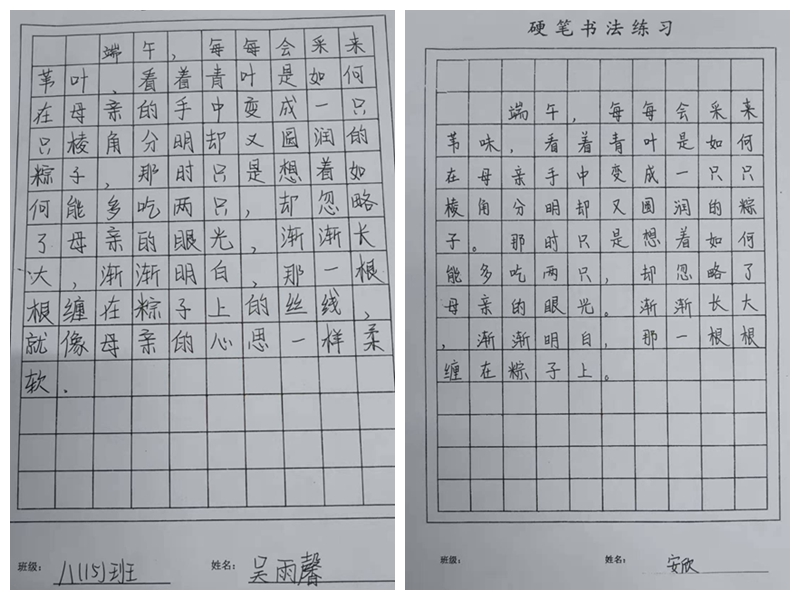 端午，每每会采来
苇叶，看着青叶是如何
在母亲的手中变成一只
只棱角分明却又圆润的
粽子，那时只是想着如
何能多吃两只，却忽略
了母亲的眼光，渐渐长
大，渐渐明白，那一根
根缠在粽子上的丝线，
就像母亲的心思一样柔
软．
班级：八(15)班 姓名：吴雨馨
硬笔书法练习
端午，每每会采来
苇味，看着青叶是如何
在母亲手中变成一只只
棱角分明却又圆润的粽
子。那时只是想着如何
能多吃两只，却忽略了
母亲的眼光。渐渐长大
，渐渐明白，那一根根
缠在粽子上。
班级： 姓名：安欣